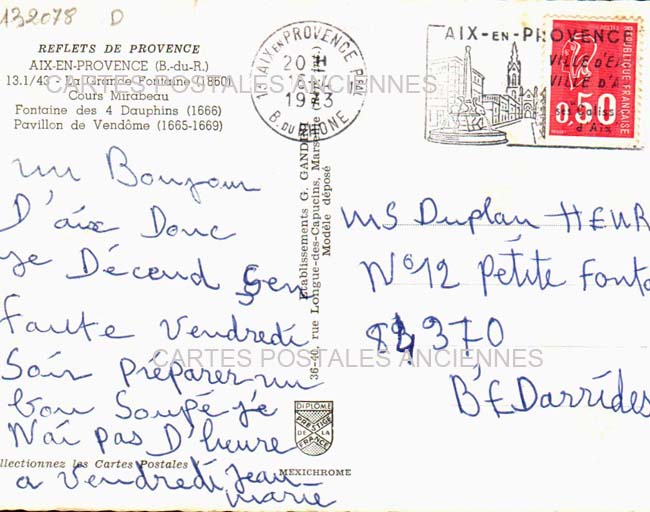 132078 D
REFLETS DE PROVENCE
AIX-EN-PROVENCE (B.-du-R.)
13.1/43 - La Grande Fontaine (1860)
Cours Mirabeau
Fontaine des 4 Dauphins (1666)
Pavillon de Vendôme (1665-1669)
CARTES POSTALES ANCIENNES
13 AIX EN PROVENCE PPAL
20 H
1973
B. DU RHONE
AIX-EN-PROVENCE
VILLE D'E
VILLE D'A
ses Caliss
d'Aix
REPUBLIQUE FRANÇAISE
0,50
un Bonjour
D'aix Donc
Je Décend Sen
faute Vendredi
Soir préparer un
bon Soupé je
N'ai pas D'heure
a Vendredi Jean
marie
Etablissements G. GANDI
36-40, rue Longue-des-Capucins, Marseille
Modèle déposé
MS Duplan HENR
N° 12 Petite Fonta
84370
BEDarrides
CARTES POSTALES ANCIENNES
DIPLOME
PRESTIGE
DE LA
FRANCE
llectionnez les Cartes Postales !
MEXICHROME